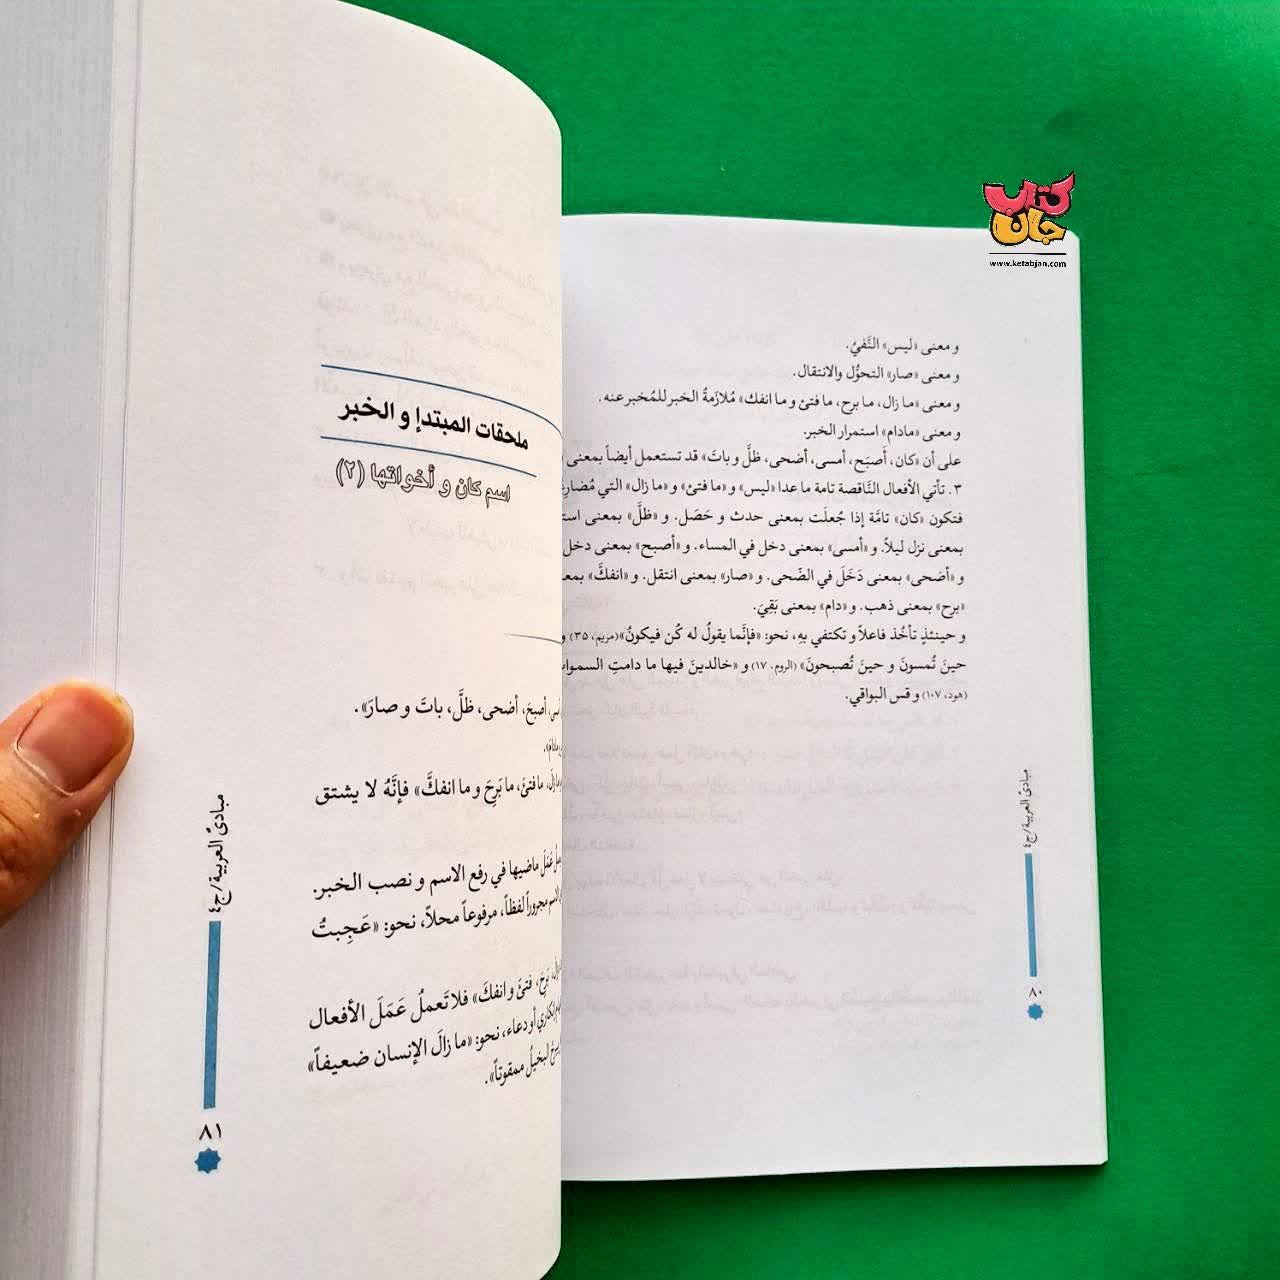 کتاب
جان
www.ketabjan.com
و معنى «ليس» النَّفيُ.
و معنى «صار» التحوُّل والانتقال.
و معنى «ما زال، ما برح، ما فتئ و ما انفك» مُلازَمةُ الخبر للمُخبر عنه.
و معنى «مادام» استمرار الخبر.
على أن «كان، أَصبَح، أمسى، أضحى، ظلَّ و باتَ» قد تستعمل أيضاً بمعنى
٣. تأتي الأفعال النَّاقصة تامة ما عدا «ليس» و «ما فتئ» و «ما زال» التي
فتكون «كان» تامَّة إذا جُعلَت بمعنى حدث و حَصَل. و «ظلَّ» بمعنى
بمعنى نزل ليلاً. و «أمسى» بمعنى دخل في المساء. و «أصبح» بمعنى دخل
و «أضحى» بمعنى دَخَلَ في الضّحى. و «صار» بمعنى انتقل. و «انفكَّ»
«برح» بمعنى ذهب. و «دام» بمعنى بَقِيَ.
و حينئذٍ تأخُذ فاعلاً و تكتفي بهِ، نحو: «فإنَّما يقولُ له كُن فيكونُ» (مريم، ٣٥) و
حينَ تُمسونَ و حينَ تُصبحونَ» (الروم، ١٧) و «خالدينَ فيها ما دامتِ
(هود، ١٠٧) و قس البواقي.
مبادئ العربية/ج٤
٨٠
ملحقات المبتدإ و الخبر
اسم كان و أخواتها (٢)
أصبحَ، أضحى، ظلَّ، باتَ و صارَ».
ما فتئَ، ما بَرِحَ و ما انفكَّ» فإنَّهُ لا يشتق
عَمَلَ ماضيها في رفع الاسم و نصب الخبر.
مجروراً لفظاً، مرفوعاً محلاً، نحو: «عَجِبتُ
بَرِحَ، فتئَ و انفكَ» فلا تَعملُ عَمَلَ الأفعال
أو دعاء، نحو: «ما زالَ الإنسان ضعيفاً»
البخيلُ ممقوتاً».
مبادئ العربية/ج٤
٨١